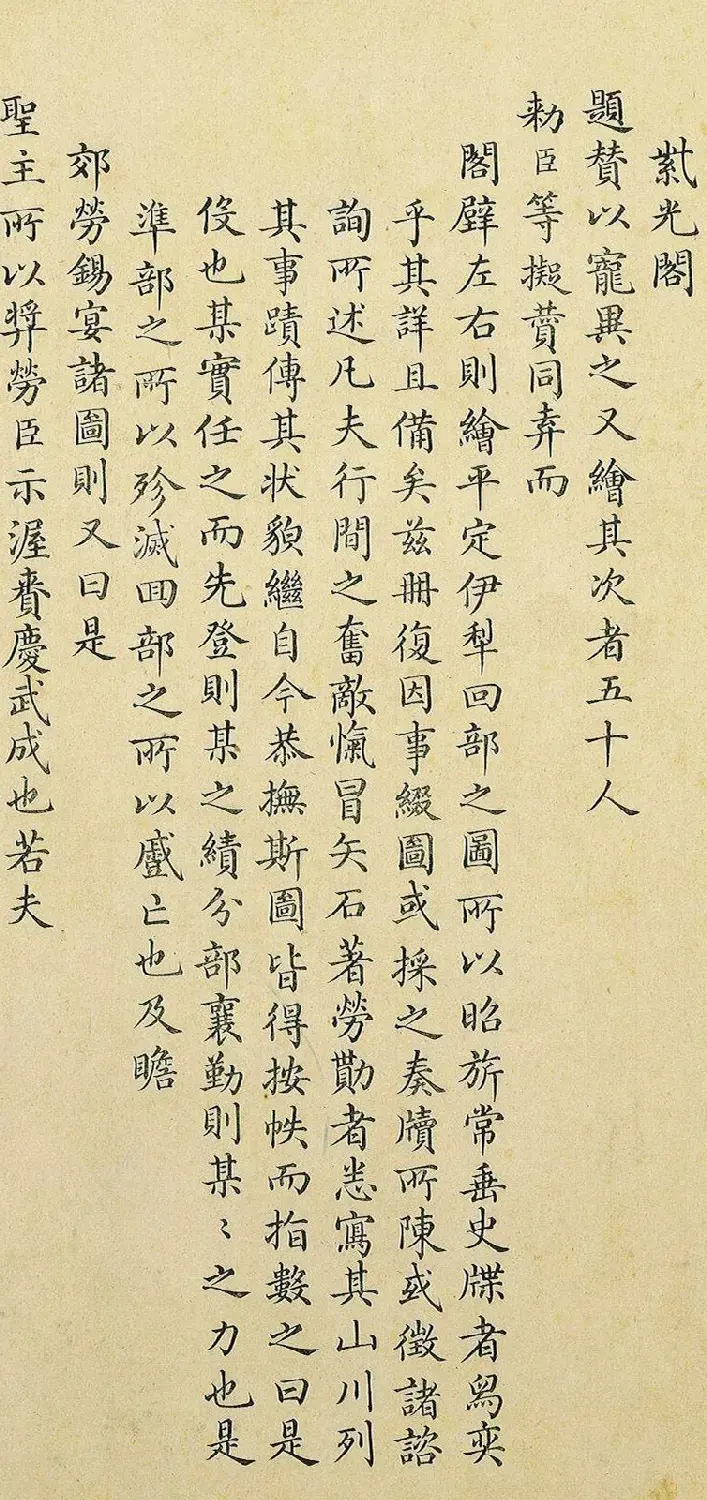 紫光閣
題賛以寵異之又繪其次者五十人
勅臣等擬賛同弆而
閣壁左右則繪平定伊犁回部之圖所以昭旂常垂史牒者舄奕
乎其詳且備矣兹冊復因事綴圖或採之奏牘所陳或徵諸諮
詢所述凡夫行間之奮敵愾冒矢石著勞勩者悉寫其山川列
其事蹟傳其狀貌繼自今恭撫斯圖皆得按帙而指數之曰是
役也某實任之而先登則某之績分部襄勤則某〻之力也是
準部之所以殄滅回部之所以戡亡也及瞻
郊勞錫宴諸圖則又曰是
聖主所以奨勞臣示渥賚慶武成也若夫